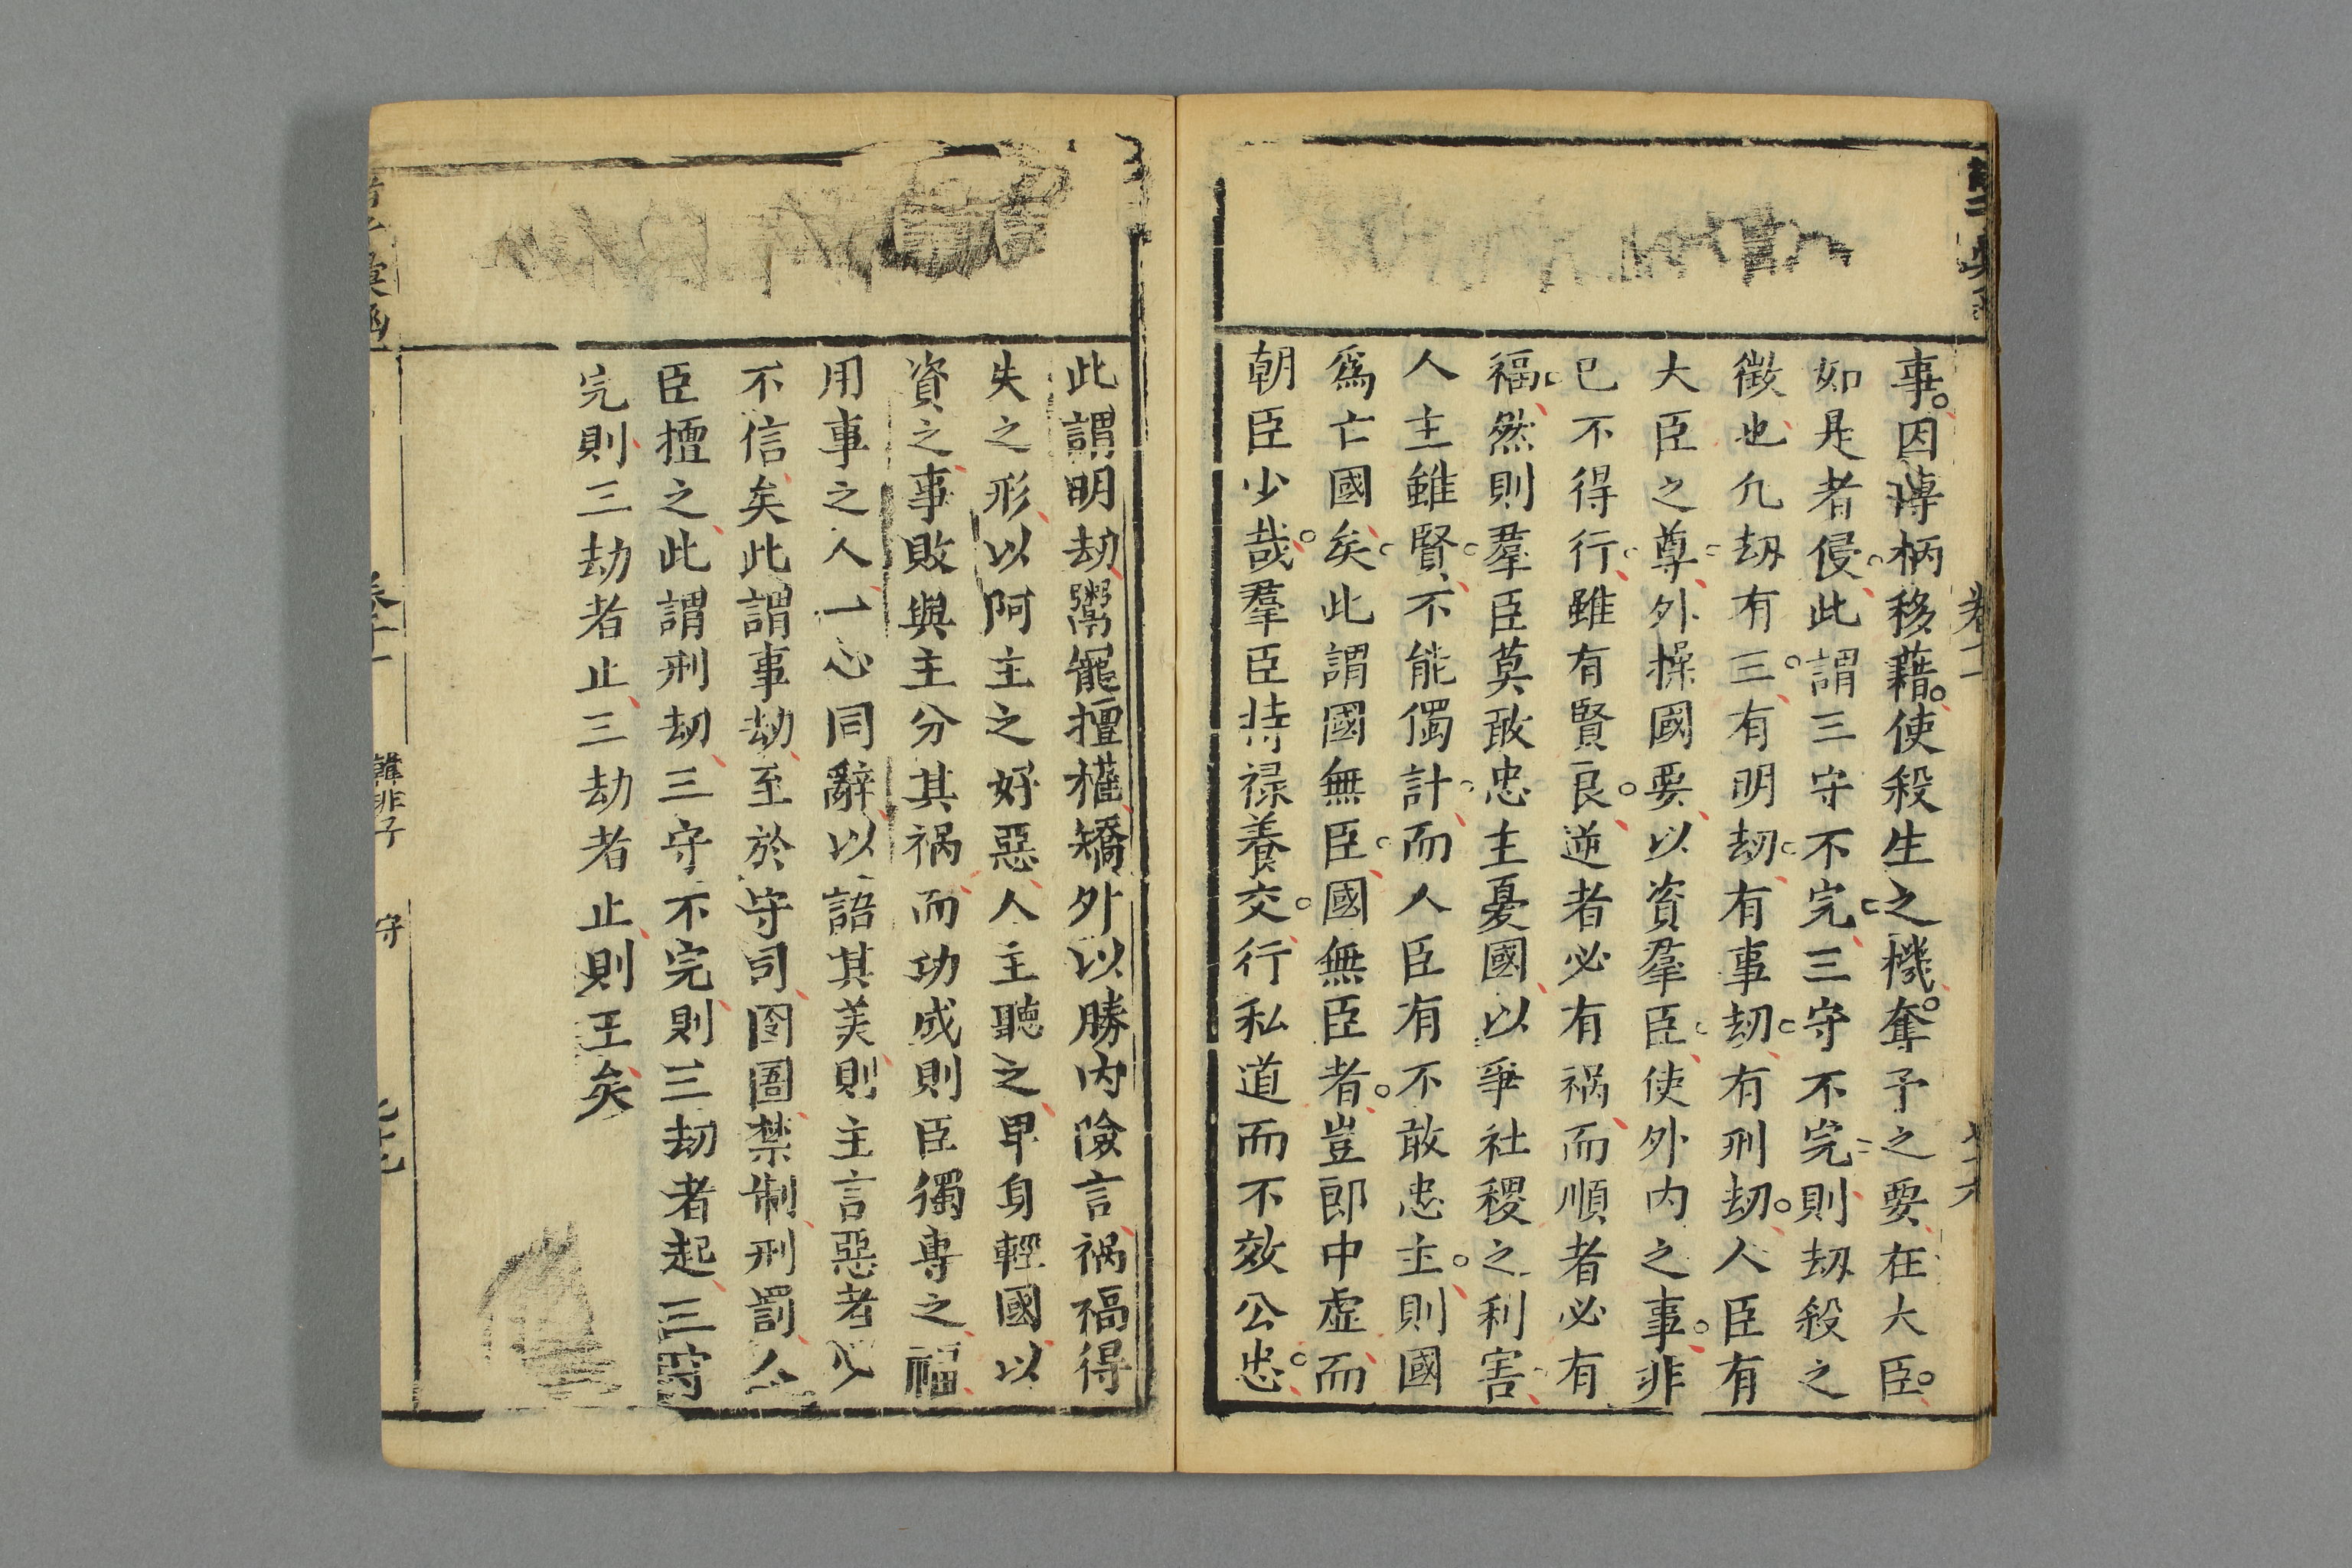 卷二
事因傳柄移藉使殺生之機奪予之要在大臣
如是者侵此謂三守不完三守不完則刼殺之
徵也凢刼有三有明刼有事刼有刑刼人臣有
大臣之尊外操國要以資羣臣使外内之事非
已不得行雖有賢良逆者必有禍而順者必有
福然則羣臣莫敢忠主憂國以爭社稷之利害
人主雖賢不能獨計而人臣有不敢忠主則國
爲亡國矣此謂國無臣國無臣者豈郎中虛而
朝臣少哉羣臣持禄養交行私道而不效公忠
此謂明劫鬻寵擅權矯外以勝内險言禍福得
失之形以阿主之好惡人主聽之卑身輕國以
資之事敗與主分其禍而功成則臣獨專之福
用事之人一心同辭以語其美則主言惡者必
不信矣此謂事劫至於守司囹圄禁制刑罰人
臣擅之此謂刑刼三守不完則三刼者起三守
完則三劫者止三劫者止則王矣
韓非子
守